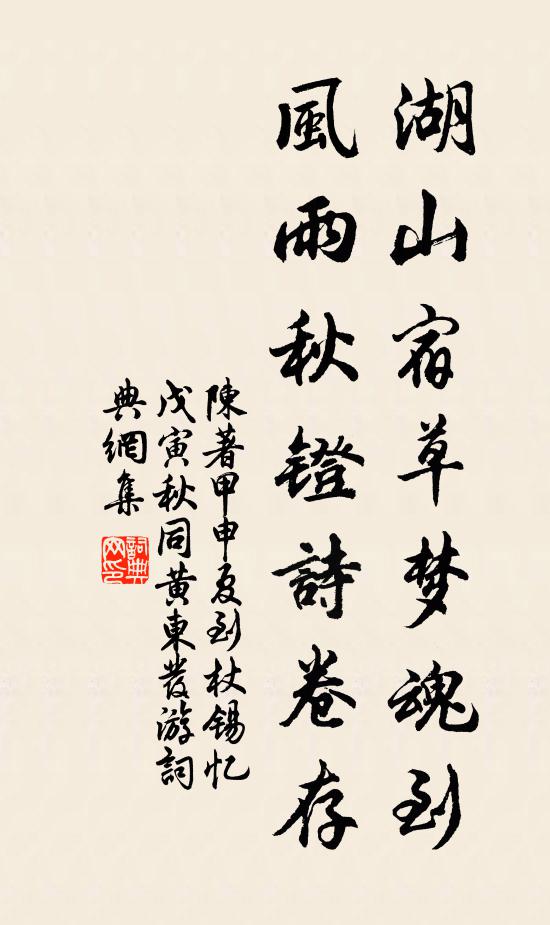 湖山宿草梦魂到
風雨秋鐙詩卷存
陳著甲申夏到杖锡忆
戊寅秋同黄東發游詞
典網集
詞典网印